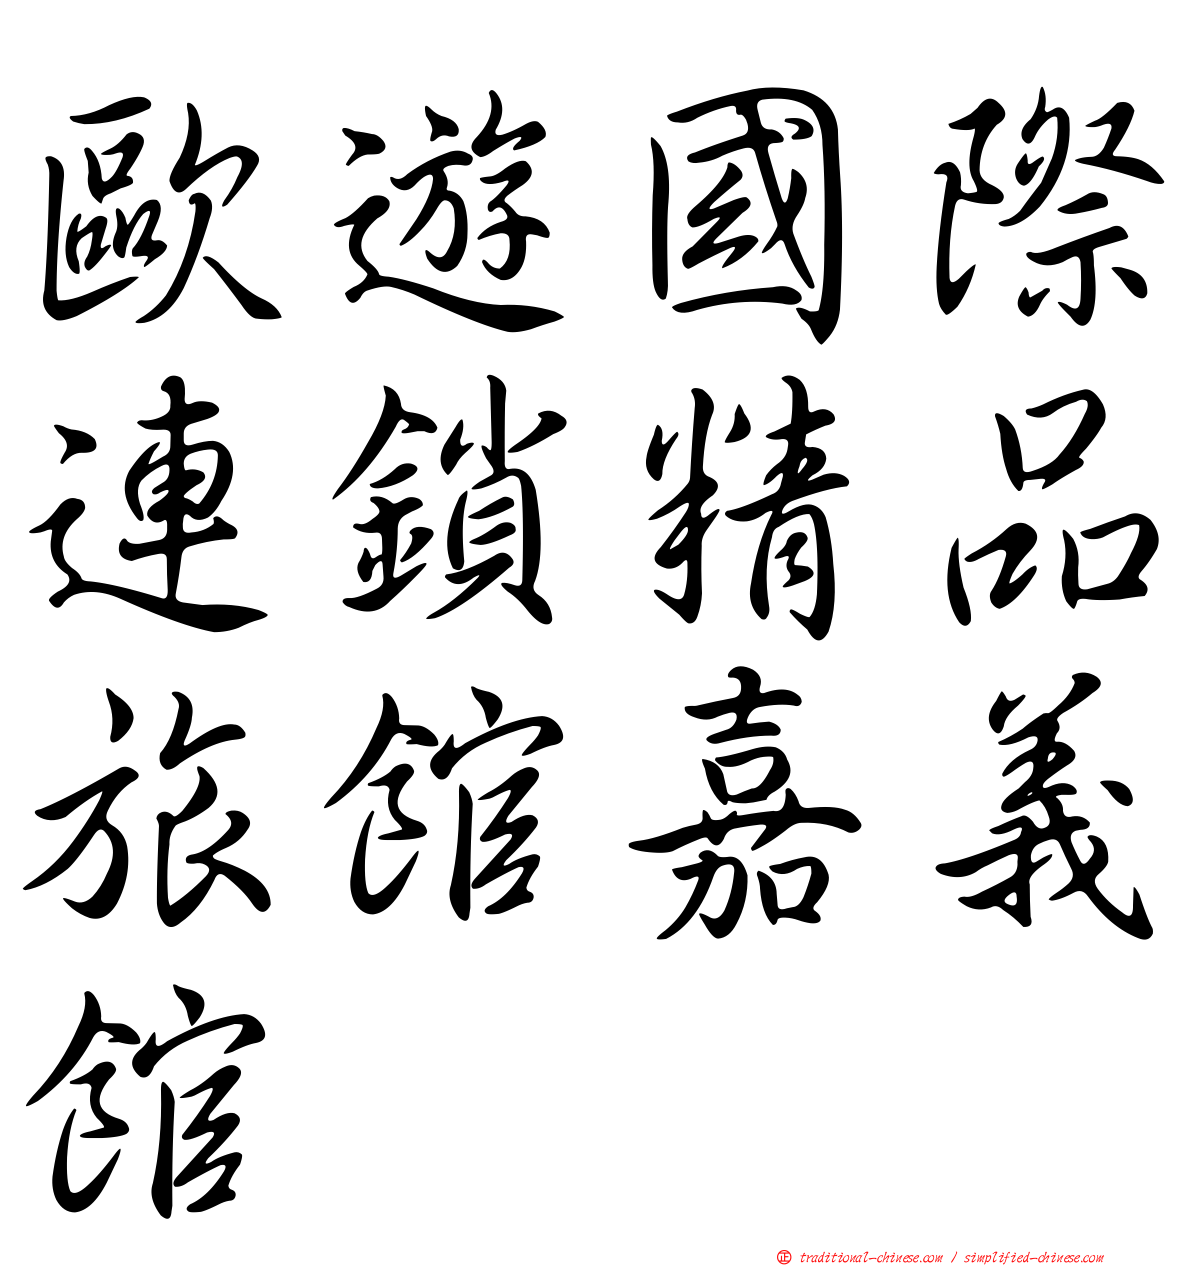 歐遊國際
連鎖精品
旅館嘉義
館
正 traditional-chinese.com / simplified-chinese.com